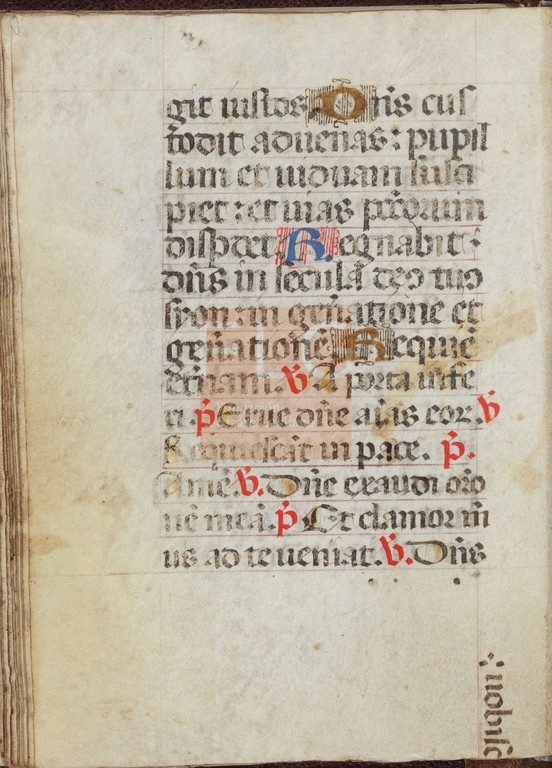 git iustos. Dn̄s cus
todit aduenas: pupil
lum et uiduam susci
piet: et uias pc̄corum
disp̄det. Regnabit:
dn̄s in seculā deo tuo
syon: in geñatione et
geñationē. Requiē
et̄nam. V̄ A porta infe
ri. R̄ Erue dn̄e aīas eor̄. V̄
Requiescāt in pace. R̄.
Amē. V̄. Dn̄e exaudi oro
nē meā. R̄ Et clamor m̄
us ad te ueniat. V̄. Dn̄s
nobisc̄